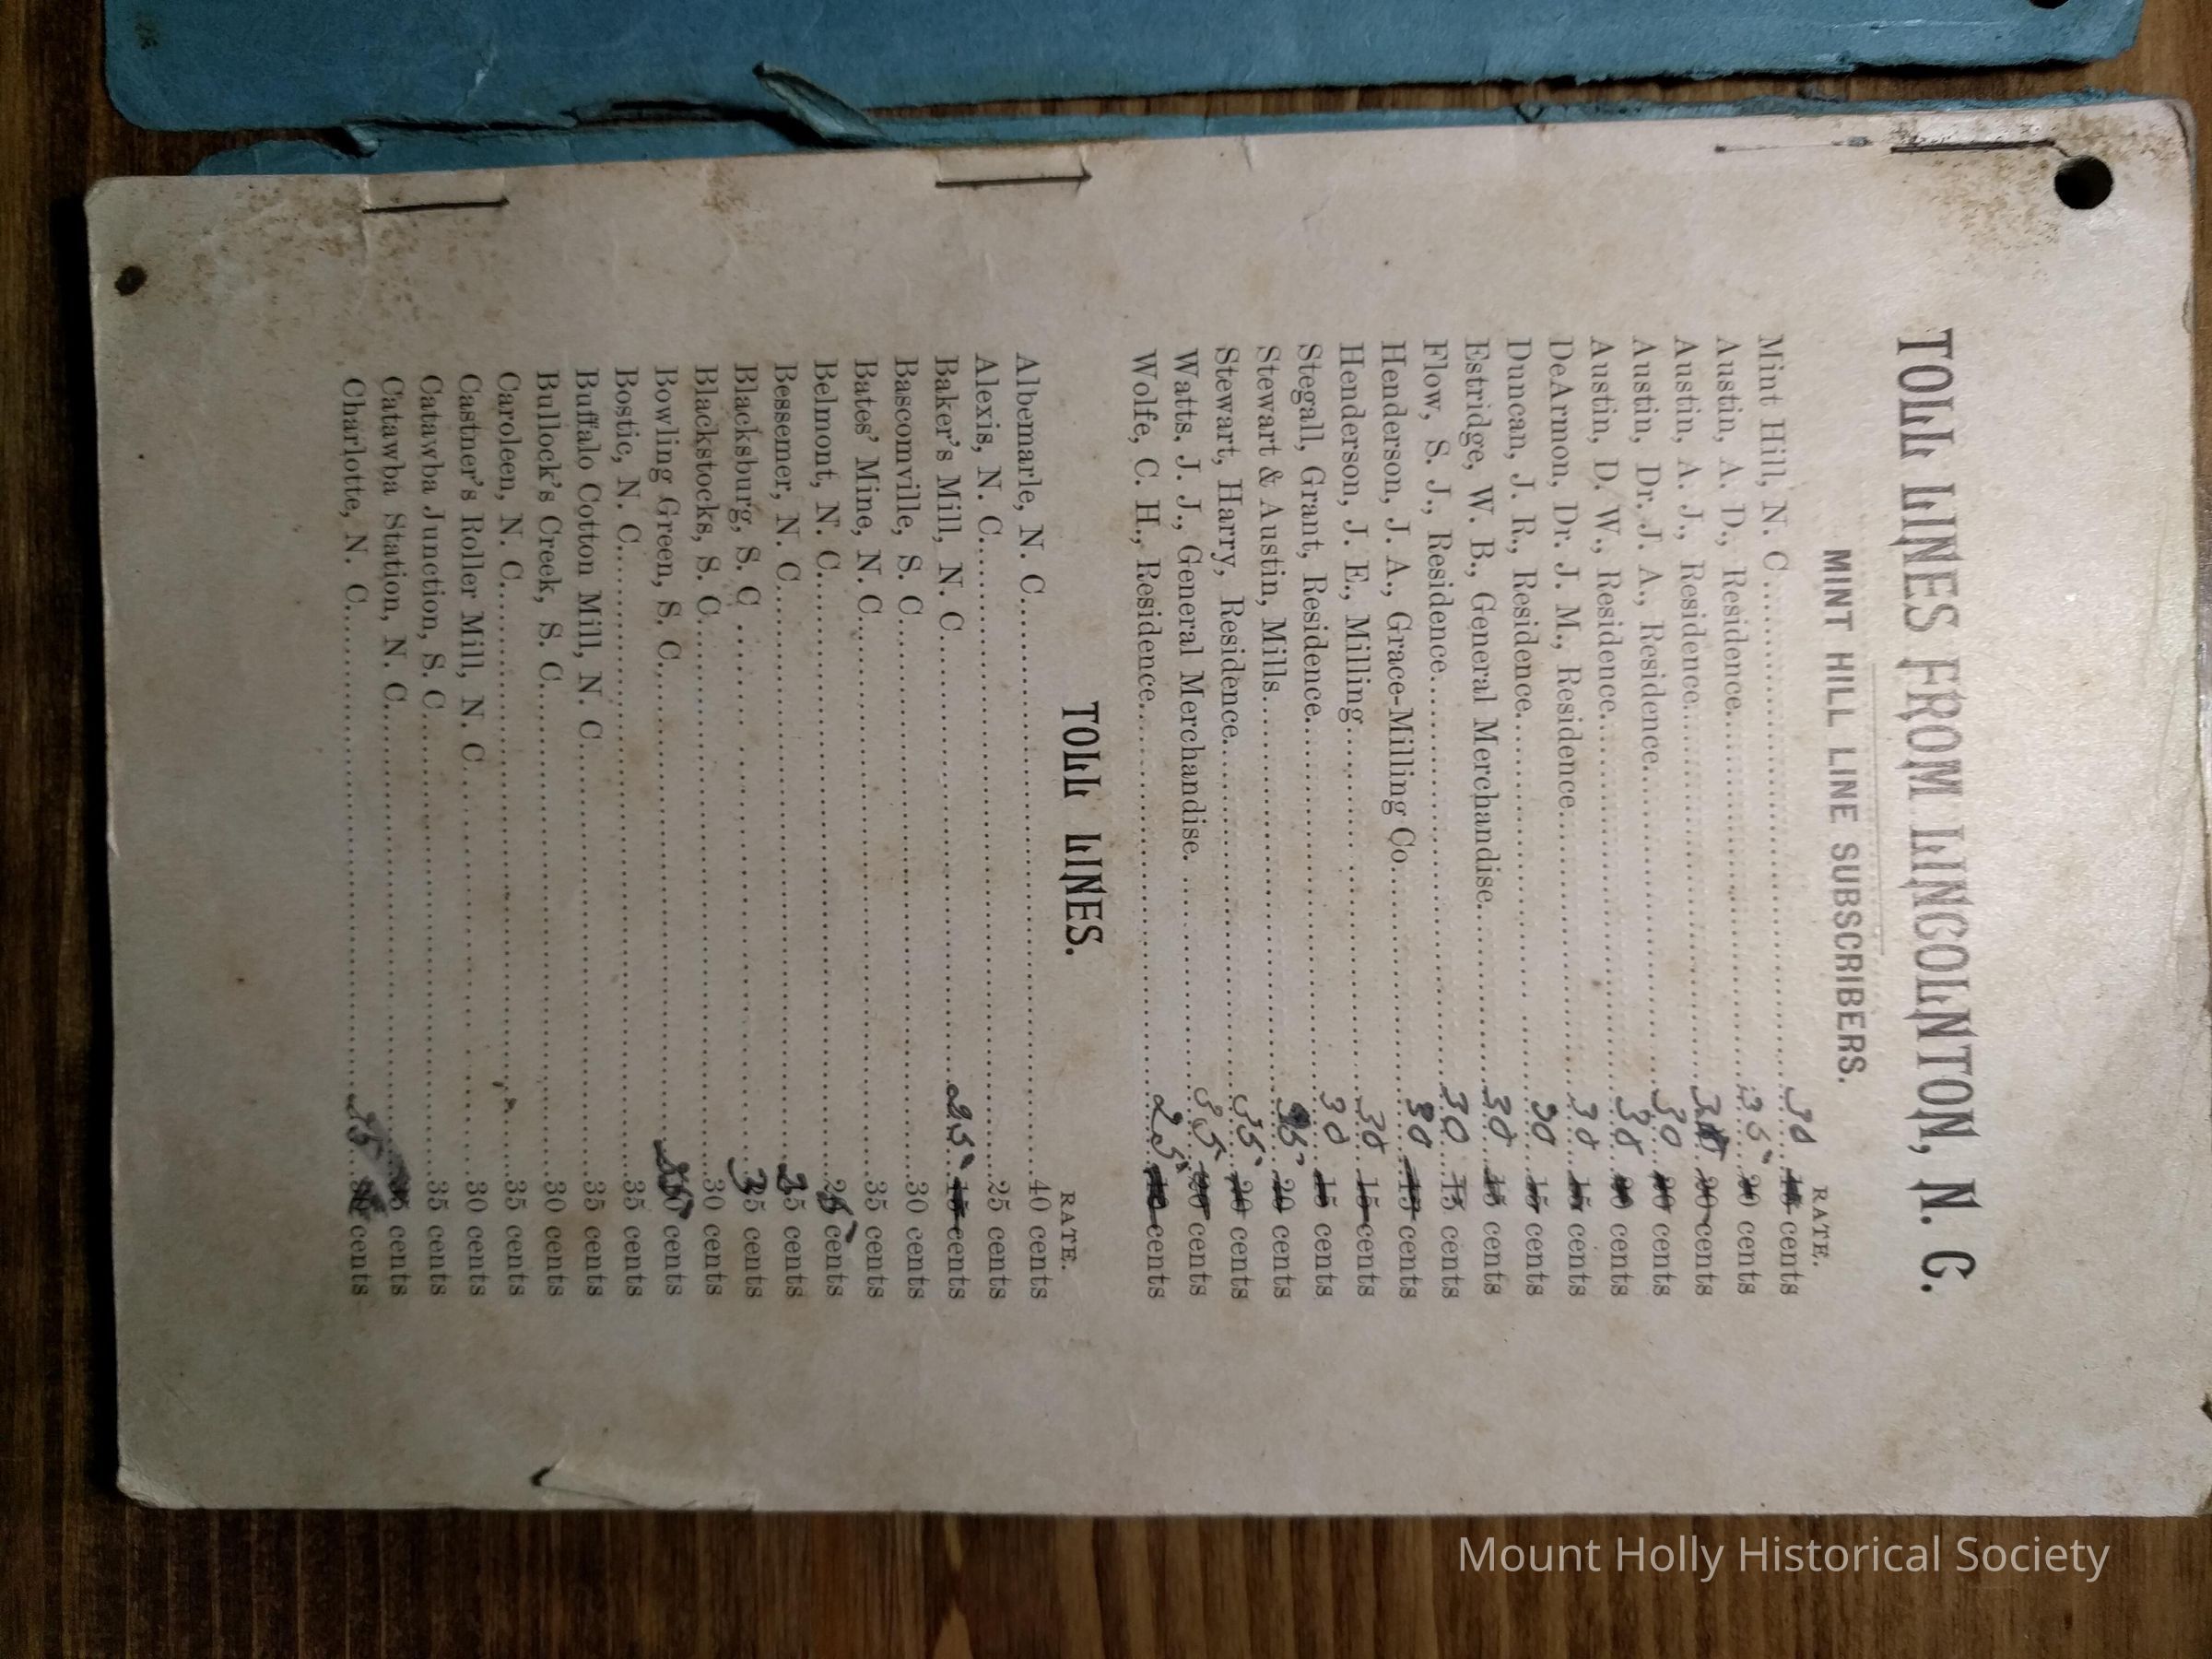 TOLL LINES FROM LINCOLNTON, N. C.
MINT HILL LINE SUBSCRIBERS.
RATE.
Mint Hill, N. C. 30 cents
Austin, A. D., Residence 35 20 cents
Austin, A. J., Residence 20 cents
Austin, Dr. J. A., Residence 30 20 cents
Austin, D. W., Residence 30 cents
DeArmon, Dr. J. M., Residence 30 15 cents
Duncan, J. R., Residence 30 15 cents
Estridge, W. B., General Merchandise 30 15 cents
Flow, S. J., Residence 30 15 cents
Henderson, J. A., Grace-Milling Co. 30 15 cents
Henderson, J. E., Milling 30 15 cents
Stegall, Grant, Residence 30 15 cents
Stewart & Austin, Mills 20 cents
Stewart, Harry, Residence 35 20 cents
Watts, J. J., General Merchandise. 35 20 cents
Wolfe, C. H., Residence 25 cents
TOLL LINES.
RATE.
Albemarle, N. C. 40 cents
Alexis, N. C. 25 cents
Baker's Mill, N. C. 25 15 cents
Bascomville, S. C. 30 cents
Bates' Mine, N. C. 35 cents
Belmont, N. C. 25 cents
Bessemer, N. C. 25 cents
Blacksburg, S. C. 35 cents
Blackstocks, S. C. 30 cents
Bowling Green, S. C. cents
Bostic, N. C. 35 cents
Buffalo Cotton Mill, N. C. 35 cents
Bullock's Creek, S. C. 30 cents
Caroleen, N. C. 35 cents
Castner's Roller Mill, N. C. 30 cents
Catawba Junction, S. C. 35 cents
Catawba Station, N. C. cents
Charlotte, N. C. 25 cents
Mount Holly Historical Society